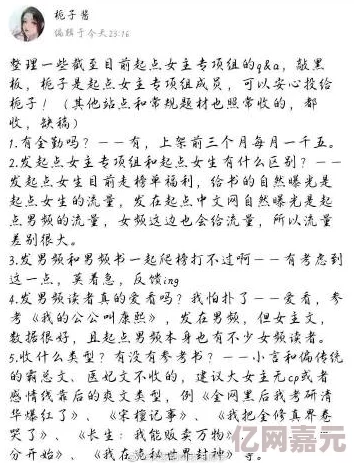 栀子酱
编辑于今天23:16
整理一些截至目前起点女主专项组的q&a，敲黑
板，栀子是起点女主专项组成员，可以安心投给
栀子！（其他站点和常规题材也照常收的，都
收，缺稿）
1.有全勤吗？——有，上架前三个月每月一千五。
2.发起点女主专项组和起点女生有什么区别？——
发起点女生目前走榜单福利，给书的自然曝光是
起点女生的流量，发在起点中文网自然曝光是起
点男频的流量，女频这边也会给流量，所以流量
差别很大。
3.发男频和男频书一起爬榜打不过啊——有考虑到
这一点，莫着急，反馈ing
4.发男频读者真的爱看吗？我怕扑了——爱看，参
考《我的公公叫康熙》，发在男频，但女主文，
数据很好，且起点男频本身也有不少女频读者。
5.收什么类型？有没有参考书？——小言和偏传统
的霸总文、医妃文不收的，建议大女主无cp或者
感情线靠后的爽文类型，例《全网黑后我考研清
华爆红了》、《宋檀记事》、《我把全修真界卷
哭了》、《长生：我能贩卖万物》、
分开始》、《我在诡秘世界封神》等。
亿网嘉元